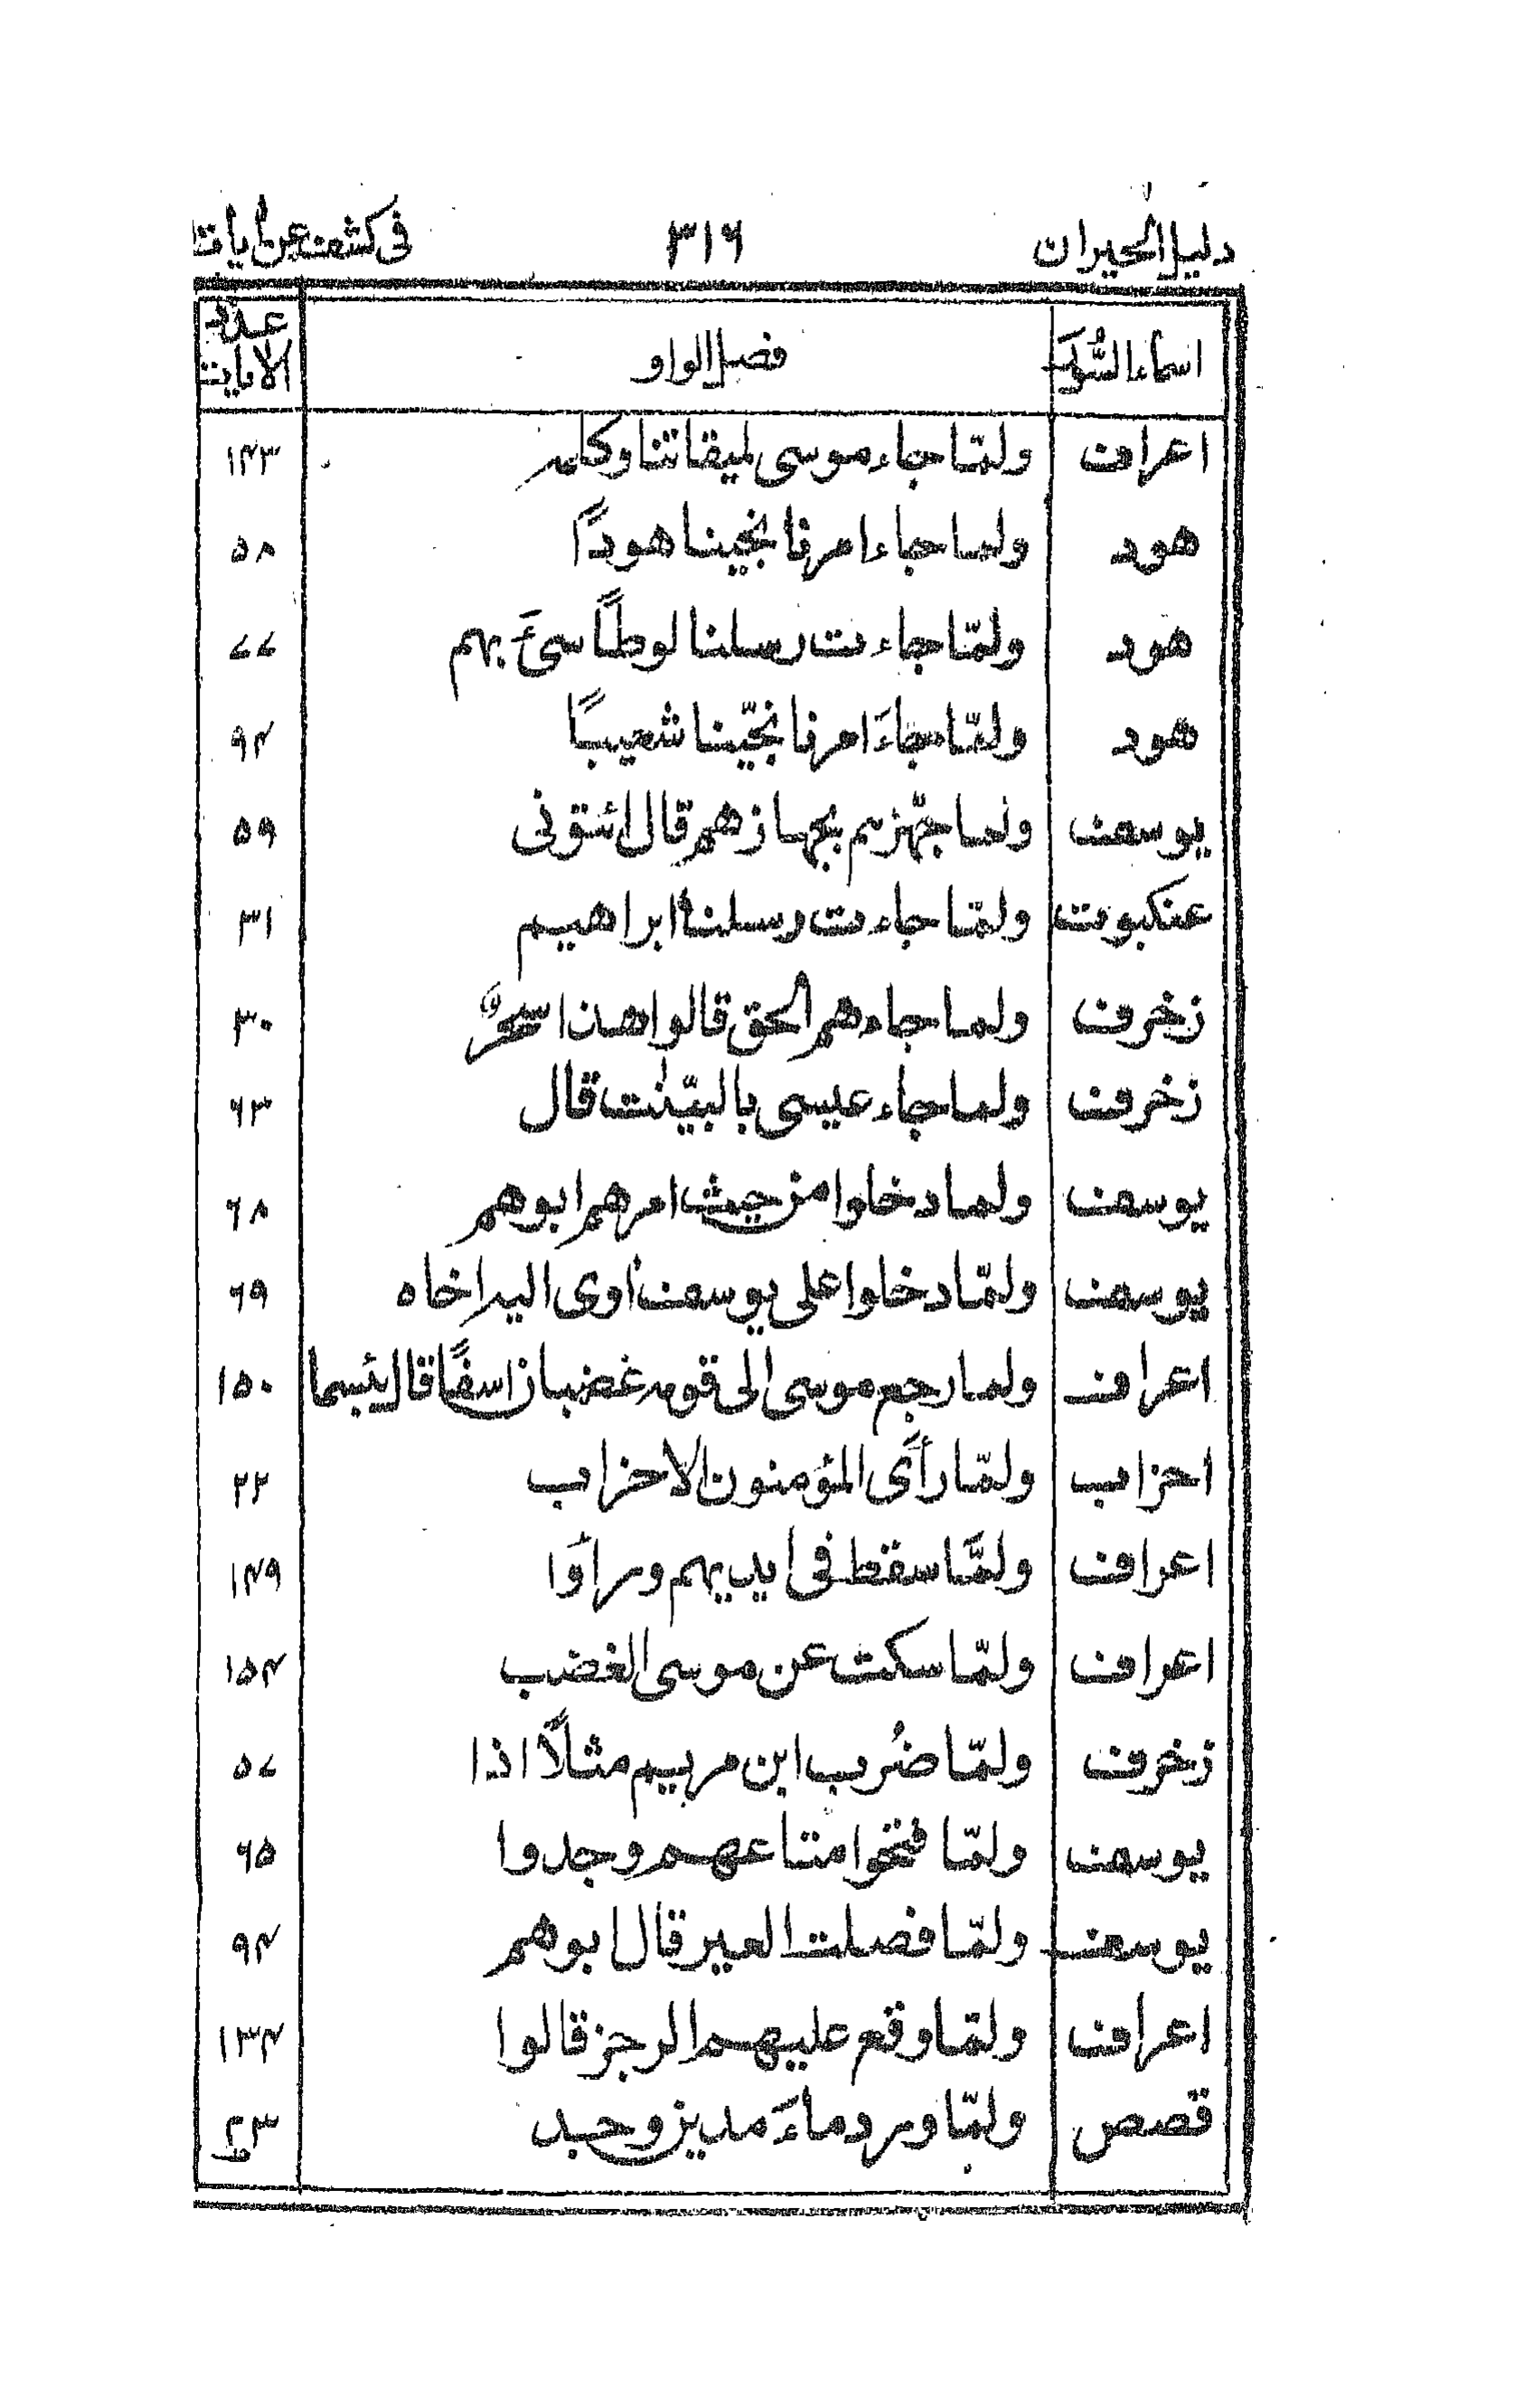 دليل الحيران ٣١٦ فى كشف عن اٰيات
اسماء السُّوَر فصل الواو عدد الاٰيات
اعراف ولمّا جاء موسى لميقاتنا وكلمه ١٤٣
هود ولما جاء امرنا نجينا هودًا ٥٨
هود ولمّا جاءت رسلنا لوطًا سىءَ بهم ٧٧
هود ولمّا جاءَ امرنا نجّينا شعيبًا ٩٤
يوسف ولما جهّزهم بجهازهم قال ائتونى ٥٩
عنكبوت ولمّا جاءت رسلنا ابراهيم ٣١
زخرف ولما جاءهم الحق قالوا هذا سحرٌ ٣٠
زخرف ولما جاء عيسى بالبيّنٰت قال ٦٣
يوسف ولما دخلوا من حيث امرهم ابوهم ٦٨
يوسف ولمّا دخلوا على يوسف اٰوى اليه اخاه ٦٩
اعراف ولما رجع موسى الى قومه غضبان اسفًا قال بئسما ١٥٠
احزاب ولمّا رأى المؤمنون الاحزاب ٢٢
اعراف ولمَّا سقط فى ايديهم ورأوا ١٤٩
اعراف ولمّا سكت عن موسى الغضب ١٥٤
زخرف ولمّا ضُرب ابن مريم مثلًا اذا ٥٧
يوسف ولمّا فتحوا متاعهم وجدوا ٦٥
يوسف ولمّا فصلت العير قال ابوهم ٩٤
اعراف ولمّا وقع عليهم الرجز قالوا ١٣٤
قصص ولمّا ورد ماءَ مدين وجد ٢٣